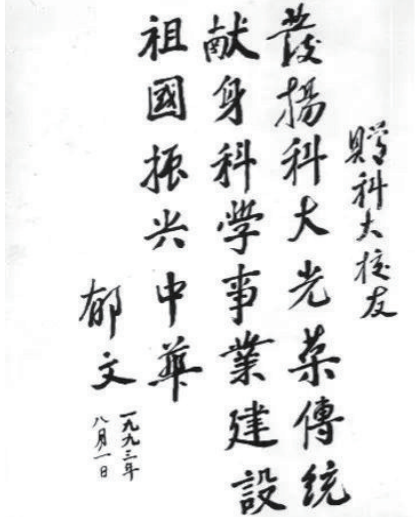 贈科大校友
發揚科大光荣傳统
献身科学事業建設
祖國振兴中華
郁文
一九九三年
八月一日